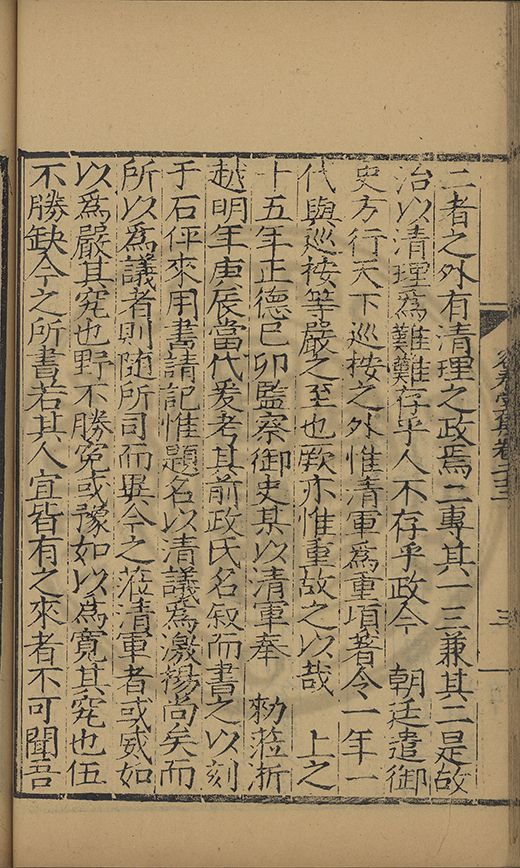 二者之外有清理之政焉二專其一三兼其二是故
治以清理爲難難存乎人不存乎政今　朝廷遣御
史方行天下巡桉之外惟清軍爲重頃著令一年一
代與巡桉等嚴之至也厥亦惟重故之以哉　上之
十五年正德己卯監察御史某以清軍奉　勑蒞浙
越明年庚辰當代爰考其前政氏名叙而書之以刻
于石伻來用書請記惟題名以清議爲激揚尚矣而
所以爲議者則隨所司而異今之蒞清軍者或威如
以爲嚴其究也野不勝寃或豫如以爲寬其究也伍
不勝缺今之所書若其人宜皆有之來者不可聞吾